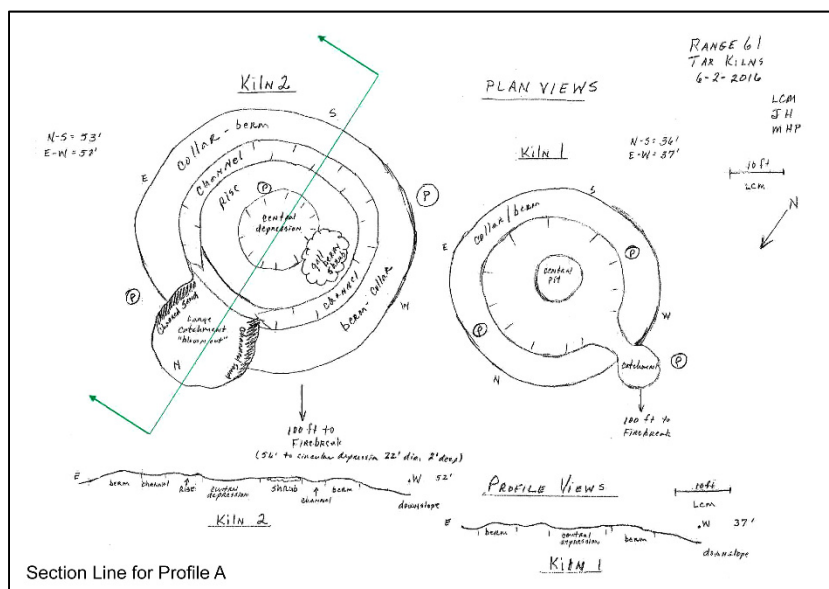 RANGE 61
TAR KILNS
6-2-2016
LCM
JH
MHP
PLAN VIEWS
Kiln 2
N-S = 53'
E-W = 52'
S
E
W
N
collar - berm
channel
Rise
P
central
depression
gall
berry
shrub
channel
berm - collar
P
P
charred sand
Large
catchment
"blow out"
charred sand
100 ft to
Firebreak
(54' to circular depression 22' dia. 2' deep)
Kiln 1
N-S = 36'
E-W = 37'
10 ft
LCM
N
S
E
W
N
collar/berm
central
pit
P
P
P
catchment
100 ft to
Firebreak
E
berm
channel
RISE
central
depression
shrub
channel
berm
W 52'
downslope
Kiln 2
PROFILE VIEWS
10ft
LCM
E
berm
central
depression
berm
W 37'
downslope
Kiln 1
Section Line for Profile A